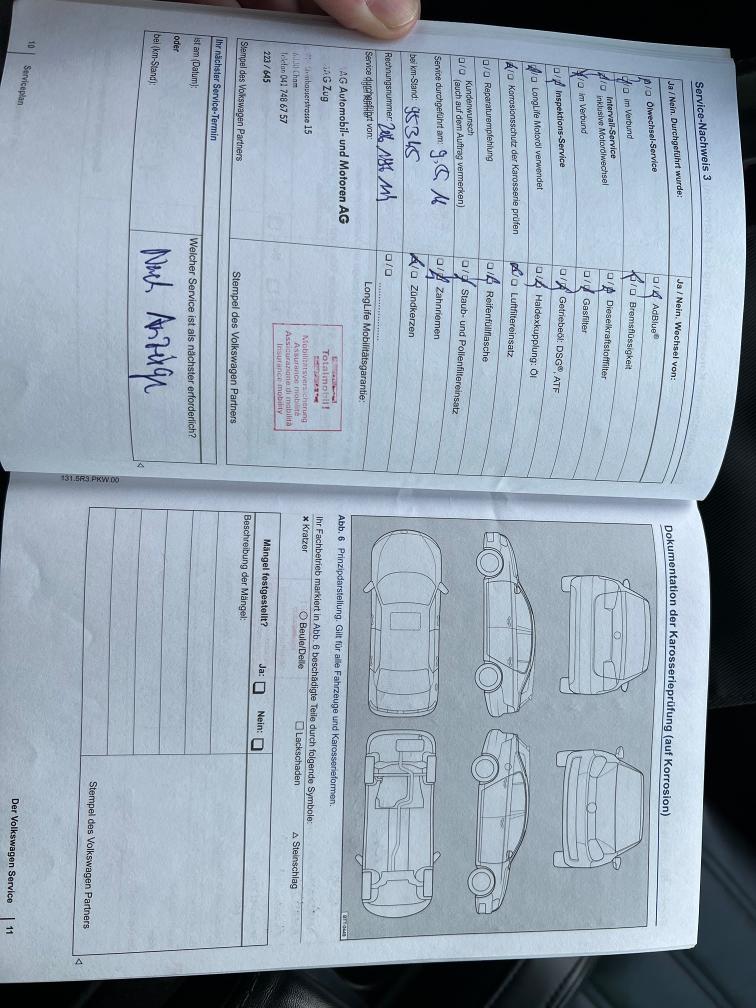 Service-Nachweis 3
Ja / Nein. Durchgeführt wurde:
Ölwechsel-Service
im Verbund
Intervall-Service
inklusive Motorölwechsel
im Verbund
Inspektions-Service
LongLife Motoröl verwendet
Korrosionsschutz der Karosserie prüfen
Reparaturempfehlung
Kundenwunsch
(auch auf dem Auftrag vermerken)
Service durchgeführt am:
bei km-Stand: 95345
Rechnungsnummer:
Service durchgeführt von:
AG Automobil- und Motoren AG
AG Zug
15
Cham
Telefon 041 748 67 57
223 / 645
Stempel des Volkswagen Partners
Ihr nächster Service-Termin
ist am (Datum):
oder
bei (km-Stand):
Ja / Nein. Wechsel von:
AdBlue®
Bremsflüssigkeit
Dieselkraftstofffilter
Gasfilter
Getriebeöl: DSG®, ATF
Haldexkupplung: Öl
Luftfiltereinsatz
Reifenfüllflasche
Staub- und Pollenfiltereinsatz
Zahnriemen
Zündkerzen
LongLife Mobilitätsgarantie:
Totalmobil!
Mobilitätsversicherung
Assurance mobilité
Assicurazione di mobilità
Insurance mobility
Stempel des Volkswagen Partners
Welcher Service ist als nächster erforderlich?
Nach Anzeige
10 Serviceplan
131.5R3.PKW.00
Dokumentation der Karosserieprüfung (auf Korrosion)
BTT-0446
Abb. 6 Prinzipdarstellung. Gilt für alle Fahrzeuge und Karosserieformen.
Ihr Fachbetrieb markiert in Abb. 6 beschädigte Teile durch folgende Symbole:
× Kratzer ○ Beule/Delle □ Lackschaden △ Steinschlag
Mängel festgestellt? Ja: □ Nein: □
Beschreibung der Mängel:
Stempel des Volkswagen Partners
Der Volkswagen Service 11